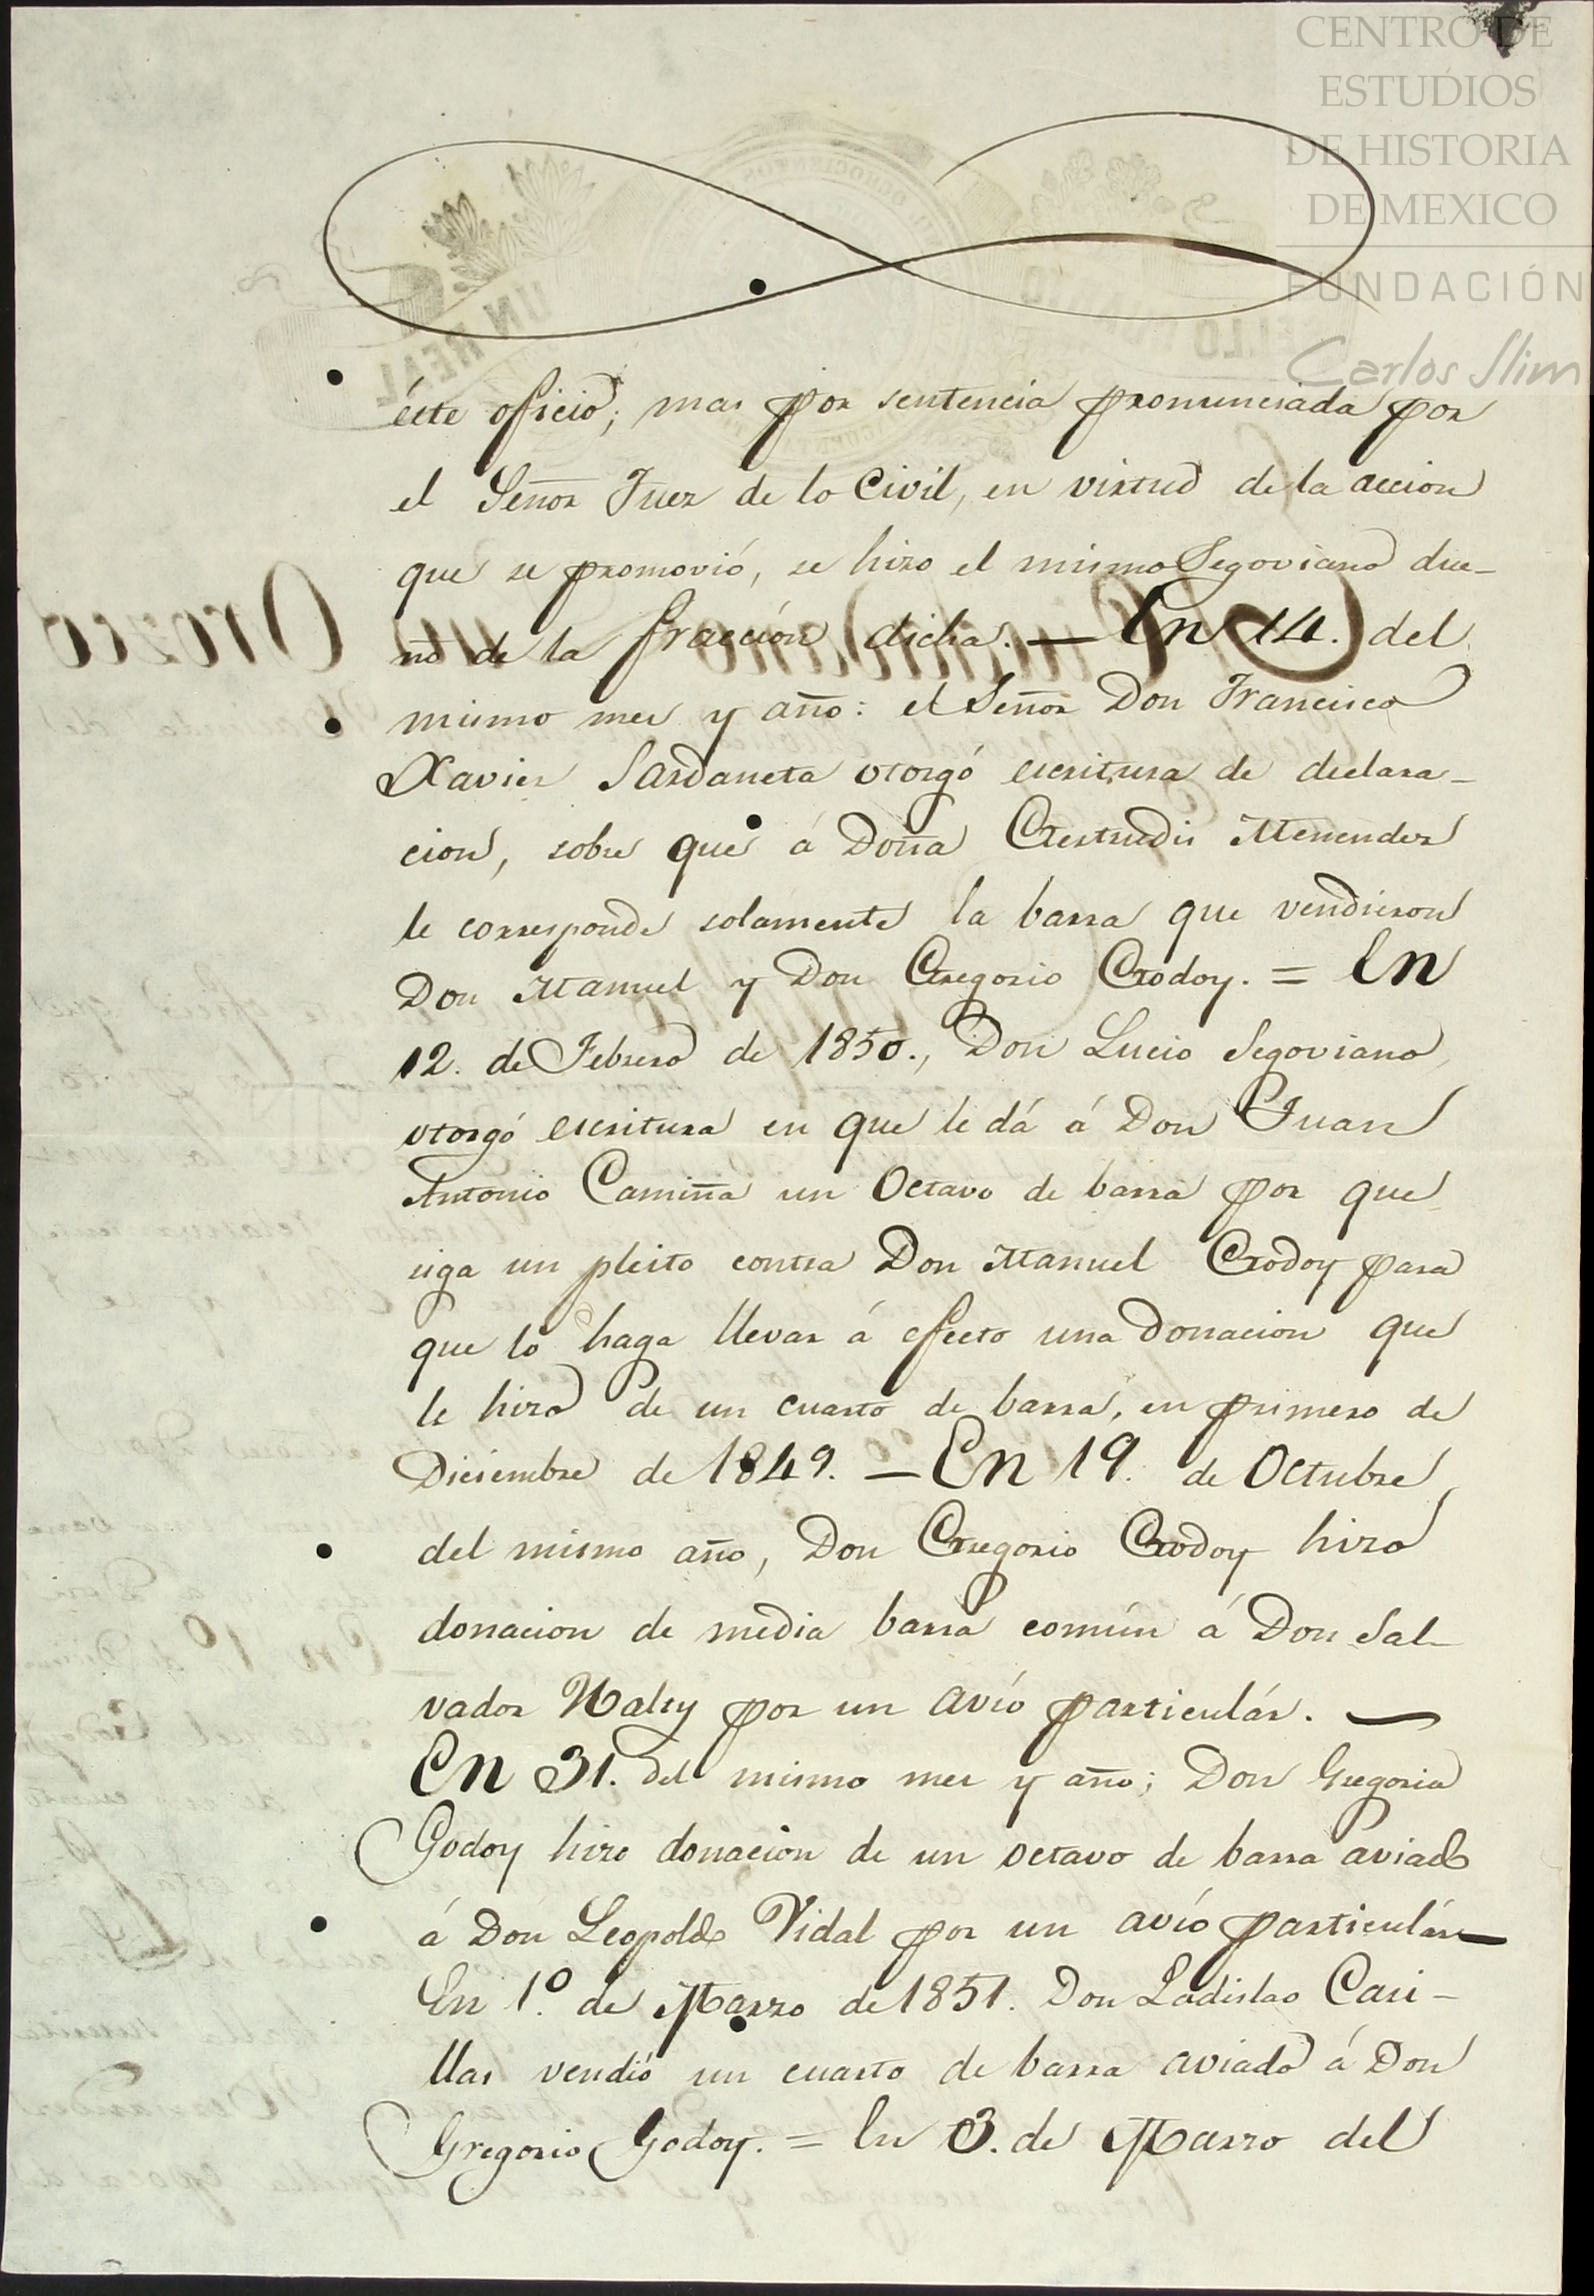 CENTRO DE
ESTUDIOS
DE HISTORIA
DE MEXICO
FUNDACIÓN
Carlos Slim
éste oficio; mas por sentencia pronunciada por
el Señor Juez de lo Civil, en virtud de la accion
que se promovió, se hizo el mismo Segoviano due-
no de la fracción dicha. — En 14. del
mismo mes y año: el Señor Don Francisco
Xavier Sardaneta otorgó escritura de declara-
cion, sobre que á Doña Gertrudis Menendez
le corresponde solamente la barra que vendieron
Don Manuel y Don Gregorio Godoy. = En
12. de Febrero de 1850., Don Lucio Segoviano,
otorgó escritura en que le dá á Don Juan
Antonio Camiña un Octavo de barra por que
siga un pleito contra Don Manuel Godoy para
que lo haga llevar á efecto una donacion que
le hizo de un cuarto de barra, en primero de
Diciembre de 1849. — En 19. de Octubre
del mismo año, Don Gregorio Godoy hizo
donacion de media barra común á Don Sal-
vador Nalty por un avío particulár. —
En 31. del mismo mes y año; Don Gregorio
Godoy hizo donacion de un octavo de barra aviado
á Don Leopoldo Vidal por un avío particulár —
En 1.º de Marzo de 1851. Don Ladislao Casi-
llas vendió un cuarto de barra aviada á Don
Gregorio Godoy. = En 3. de Marzo del
UN REAL
Orozco